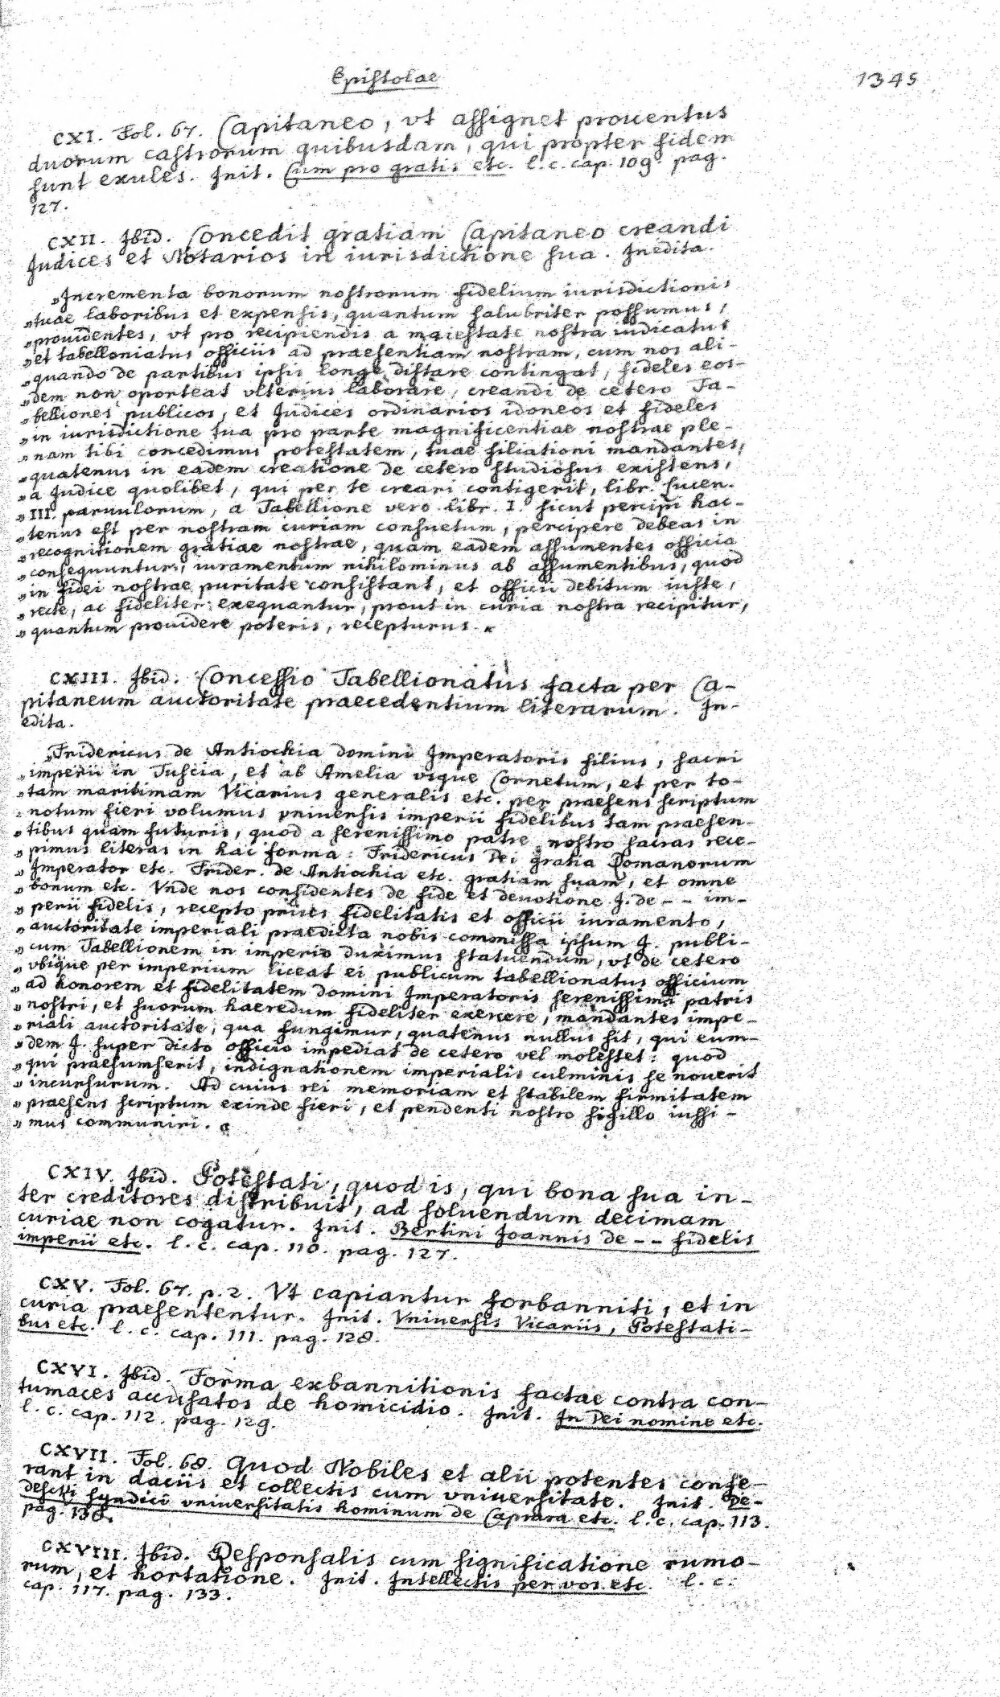 Epistolae
1345
CXI. Fol. 67. Capitaneo, vt assignet prouentus
duorum castrorum quibusdam, qui propter fidem
sunt exules. Init. Cum pro gratis etc. l. c. cap. 109 pag.
127.
CXII. Ibid. Concedit gratiam Capitaneo creandi
Judices et Notarios in iurisdictione sua. Inedita.
„Incrementa bonorum nostrorum fidelium iurisdictionis
„tuae laboribus et expensis, quantum salubriter possumus,
„prouidentes, vt pro recipiendis a maiestate nostra iudicatus
„et tabellionatus officiis ad praesentiam nostram, cum nos ali-
„quando de partibus ipsis longe distare contingat, fideles eos-
„dem non oporteat vlterius laborare, creandi de cetero Ta-
„belliones publicos, et Judices ordinarios idoneos et fideles
„in iurisdictione tua pro parte magnificentiae nostrae ple-
„nam tibi concedimus potestatem, tuae filiationi mandantes,
„quatenus in eadem creatione de cetero studiosus existens,
„a Judice quolibet, qui per te creari contigerit, libr. Lucen.
„III. paruulorum, a Tabellione vero libr. I. sicut percipi hac-
„tenus est per nostram curiam consuetum, percipere debeas in
„recognitionem gratiae nostrae, quam eadem assumentes officia
„consequuntur, iuramentum nihilominus ab assumentibus, quod
„in fidei nostrae puritate consistant, et officii debitum iuste,
„recte, ac fideliter exequantur, prout in curia nostra recipitur,
„quantum prouidere poteris, recepturus. «
CXIII. Ibid. Concessio Tabellionatus facta per Ca-
pitaneum auctoritate praecedentium literarum. In-
edita.
„Fridericus de Antiochia domini Imperatoris filius, sacri
„imperii in Tuscia, et ab Amelia vsque Cornetum, et per to-
„tam maritimam Vicarius generalis etc. per praesens scriptum
„notum fieri volumus vniuersis imperii fidelibus tam praesen-
„tibus quam futuris, quod a serenissimo patre nostro sacras rece-
„pimus literas in hac forma: Fridericus Dei gratia Romanorum
„Imperator etc. Frider. de Antiochia etc. gratiam suam, et omne
„bonum etc. Vnde nos confidentes de fide et deuotione J. de -- im-
„perii fidelis, recepto prius fidelitatis et officii iuramento,
„auctoritate imperiali praedicta nobis commissa ipsum J. publi-
„cum Tabellionem in imperio duximus statuendum, vt de cetero
„vbique per imperium liceat ei publicum tabellionatus officium
„ad honorem et fidelitatem domini Imperatoris serenissimi patris
„nostri, et suorum haeredum fideliter exercere, mandantes impe-
„riali auctoritate, qua fungimur, quatenus nullus sit, qui eum-
„dem J. super dicto officio impediat de cetero vel molestet: quod
„qui praesumserit, indignationem imperialis culminis se nouerit
„incursurum. Ad cuius rei memoriam et stabilem firmitatem
„praesens scriptum exinde fieri, et pendenti nostro sigillo iussi-
„mus communiri. «
CXIV. Ibid. Potestati, quod is, qui bona sua in-
ter creditores distribuit, ad soluendum decimam
curiae non cogatur. Init. Bertini Joannis de -- fidelis
imperii etc. l. c. cap. 110. pag. 127.
CXV. Fol. 67. p. 2. Vt capiantur forbanniti, et in
curia praesententur. Init. Vniuersis Vicariis, Potestati-
bus etc. l. c. cap. 111. pag. 128.
CXVI. Ibid. Forma exbannitionis factae contra con-
tumaces accusatos de homicidio. Init. In Dei nomine etc.
l. c. cap. 112. pag. 129.
CXVII. Fol. 68. Quod Nobiles et alii potentes confe-
rant in daciis et collectis cum vniuersitate. Init. De-
syndici vniuersitatis hominum de Caprara etc. l. c. cap. 113.
pag. 130.
CXVIII. Ibid. Responsalis cum significatione rumo-
rum, et hortatione. Init. Intellectis per vos etc. l. c.
cap. 117. pag. 133.